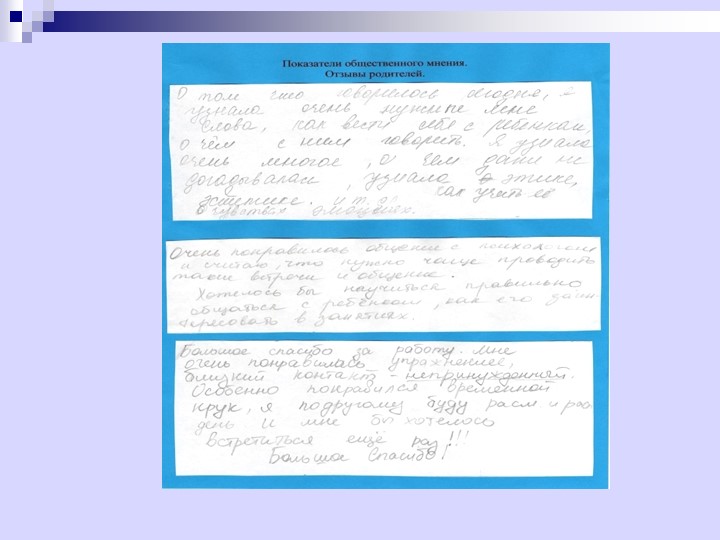 Показатели общественного мнения.
Отзывы родителей.
О том что говорилось сегодня, я
узнала очень нужные мне
слова, как вести себя с ребёнком,
о чём с ним говорить. Я узнала
очень многое, о чем даже не
догадывалась, узнала о этике,
эстетике. и т.д. как учить её
о чувствах эмоциях.
Очень понравилось общение с психологом
и считаю, что нужно чаще проводить
такие встречи и общение.
Хотелось бы научиться правильно
общаться с ребёнком, как его заин-
тересовать в занятиях.
Большое спасибо за работу. Мне
очень понравилась упражнение,
близкий контакт - непринуждённый.
Особенно понравился временной
круг, я подругому буду
день и мне бы хотелось
встретиться ещё раз!!!
Большое Спасибо!